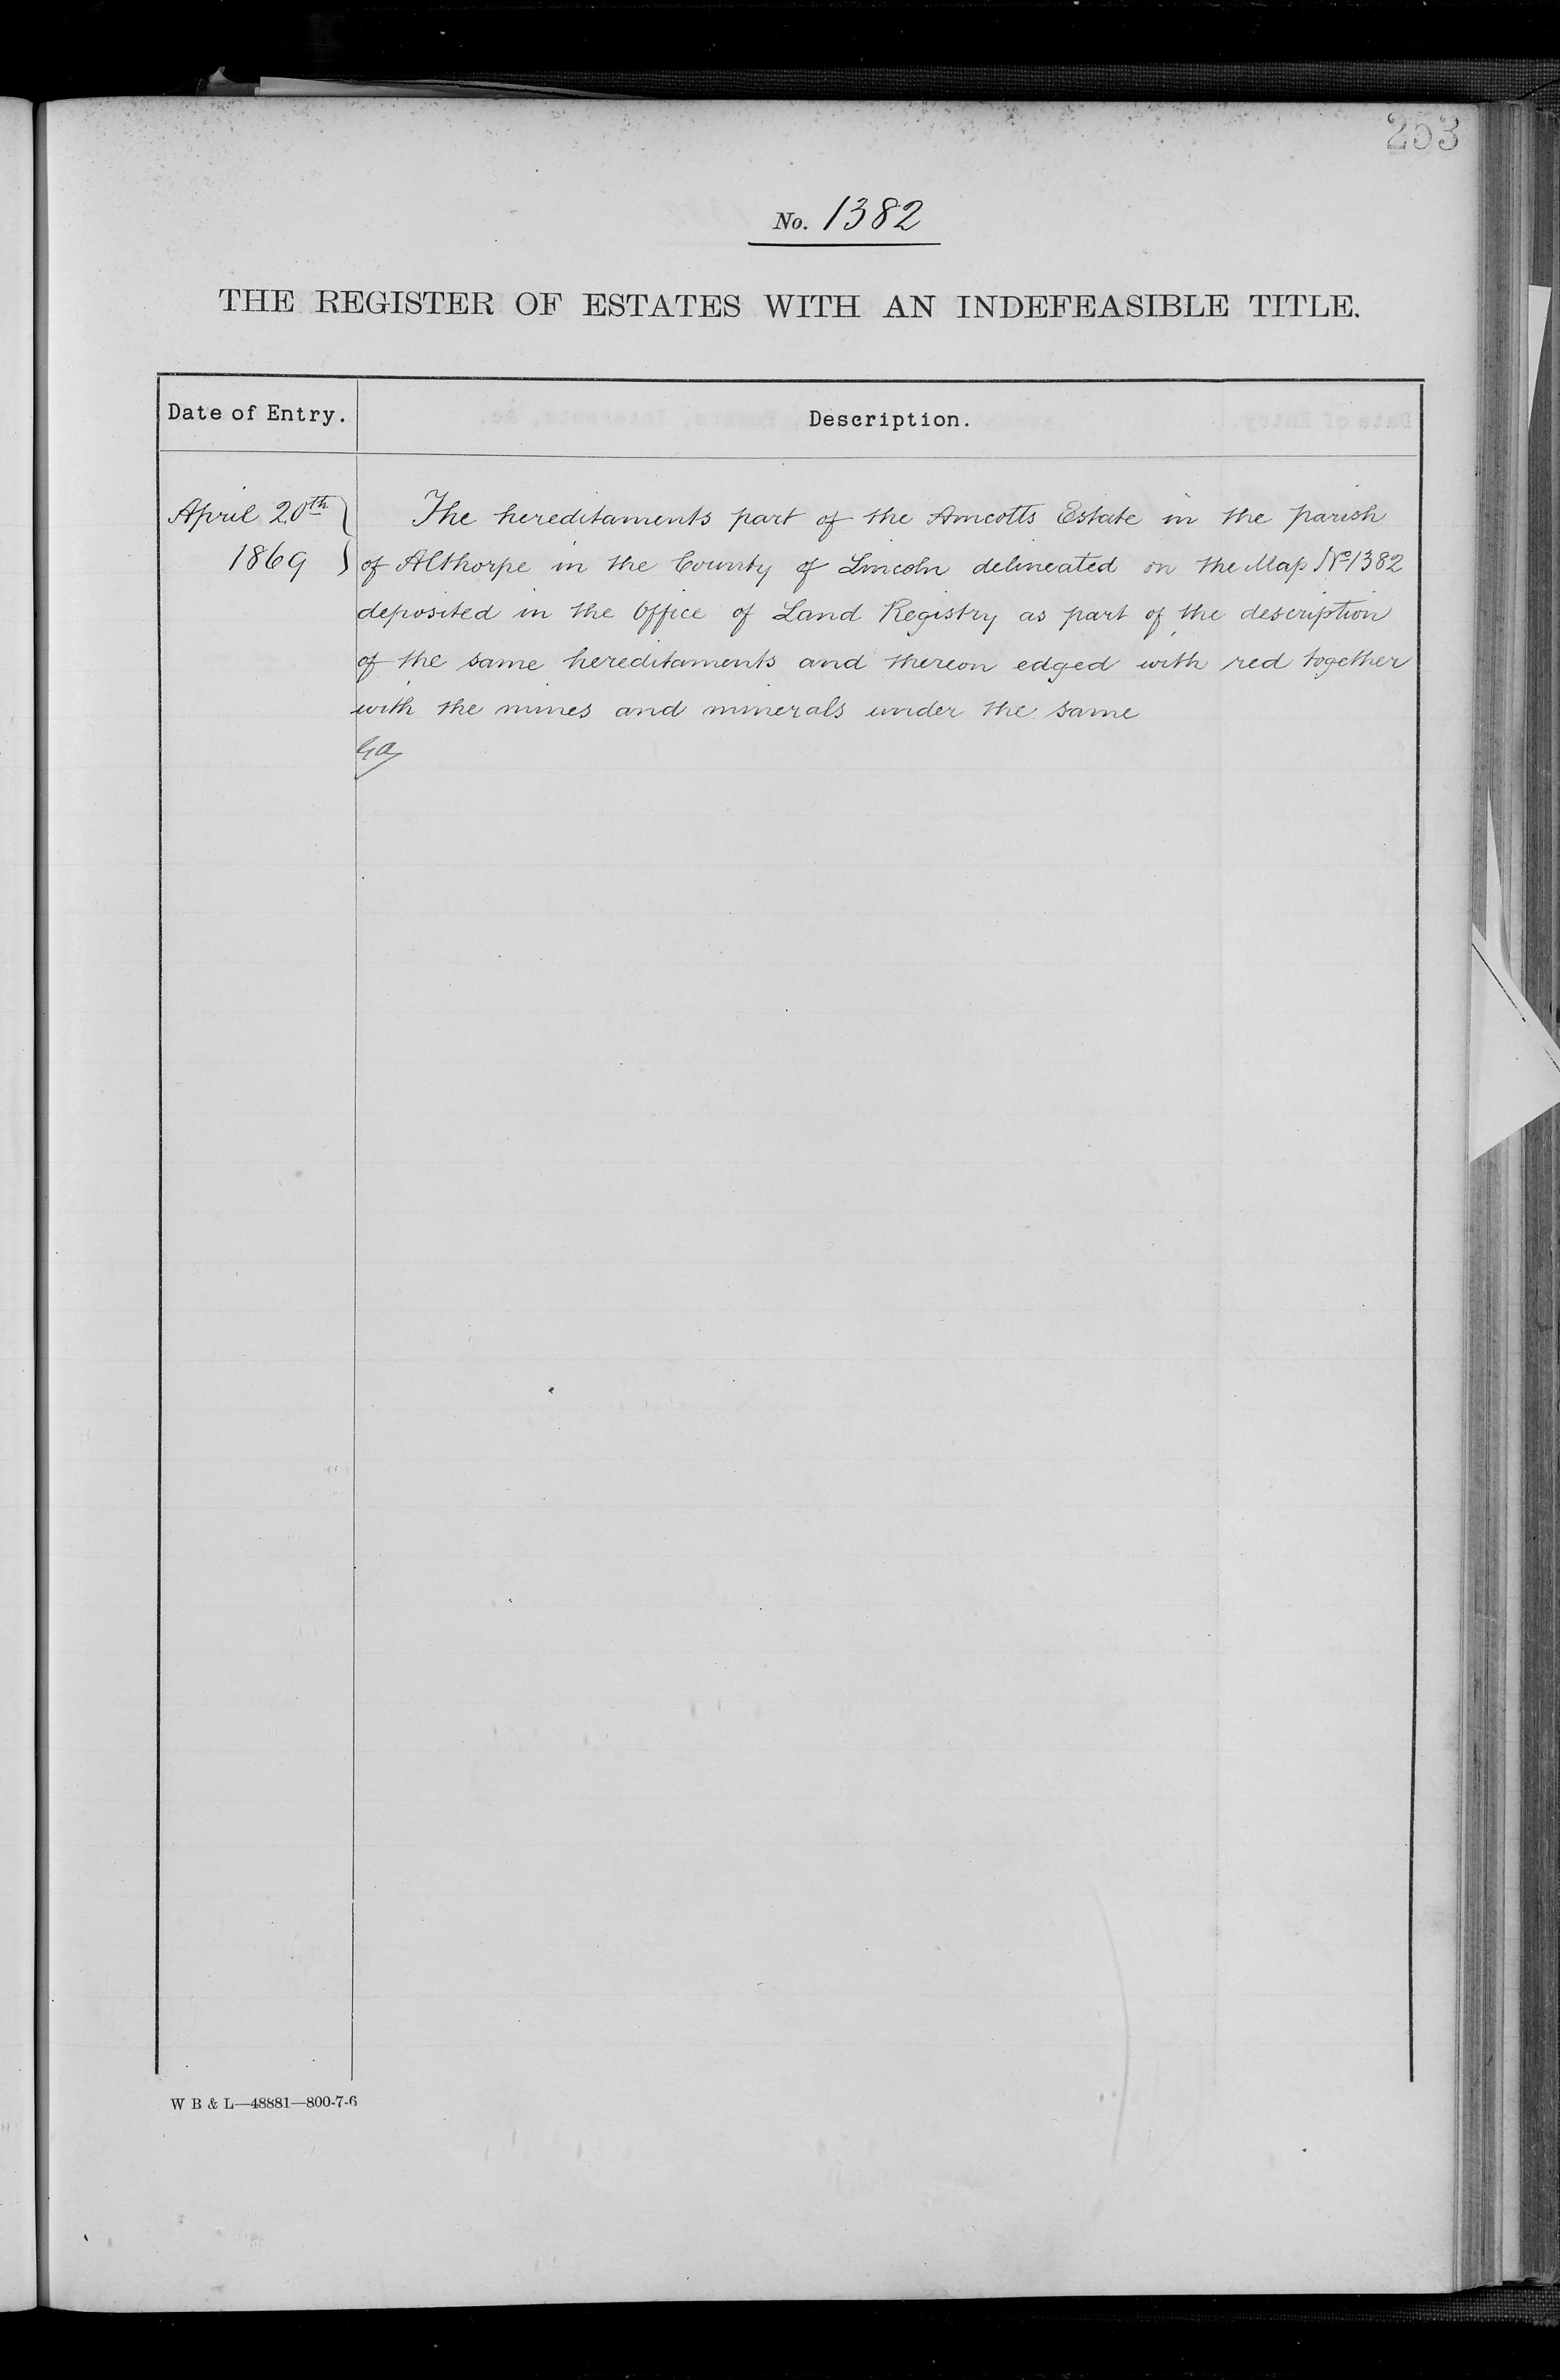 253
No. 1382
THE REGISTER OF ESTATES WITH AN INDEFEASIBLE TITLE.
Date of Entry.
Description.
April 20th
1869
The hereditaments part of the Amcotts Estate in the parish
of Althorpe in the County of Lincoln delineated on the Map No 1382
deposited in the Office of Land Registry as part of the description
of the same hereditaments and thereon edged with red together
with the mines and minerals under the same
W B & L—48881—800-7-6